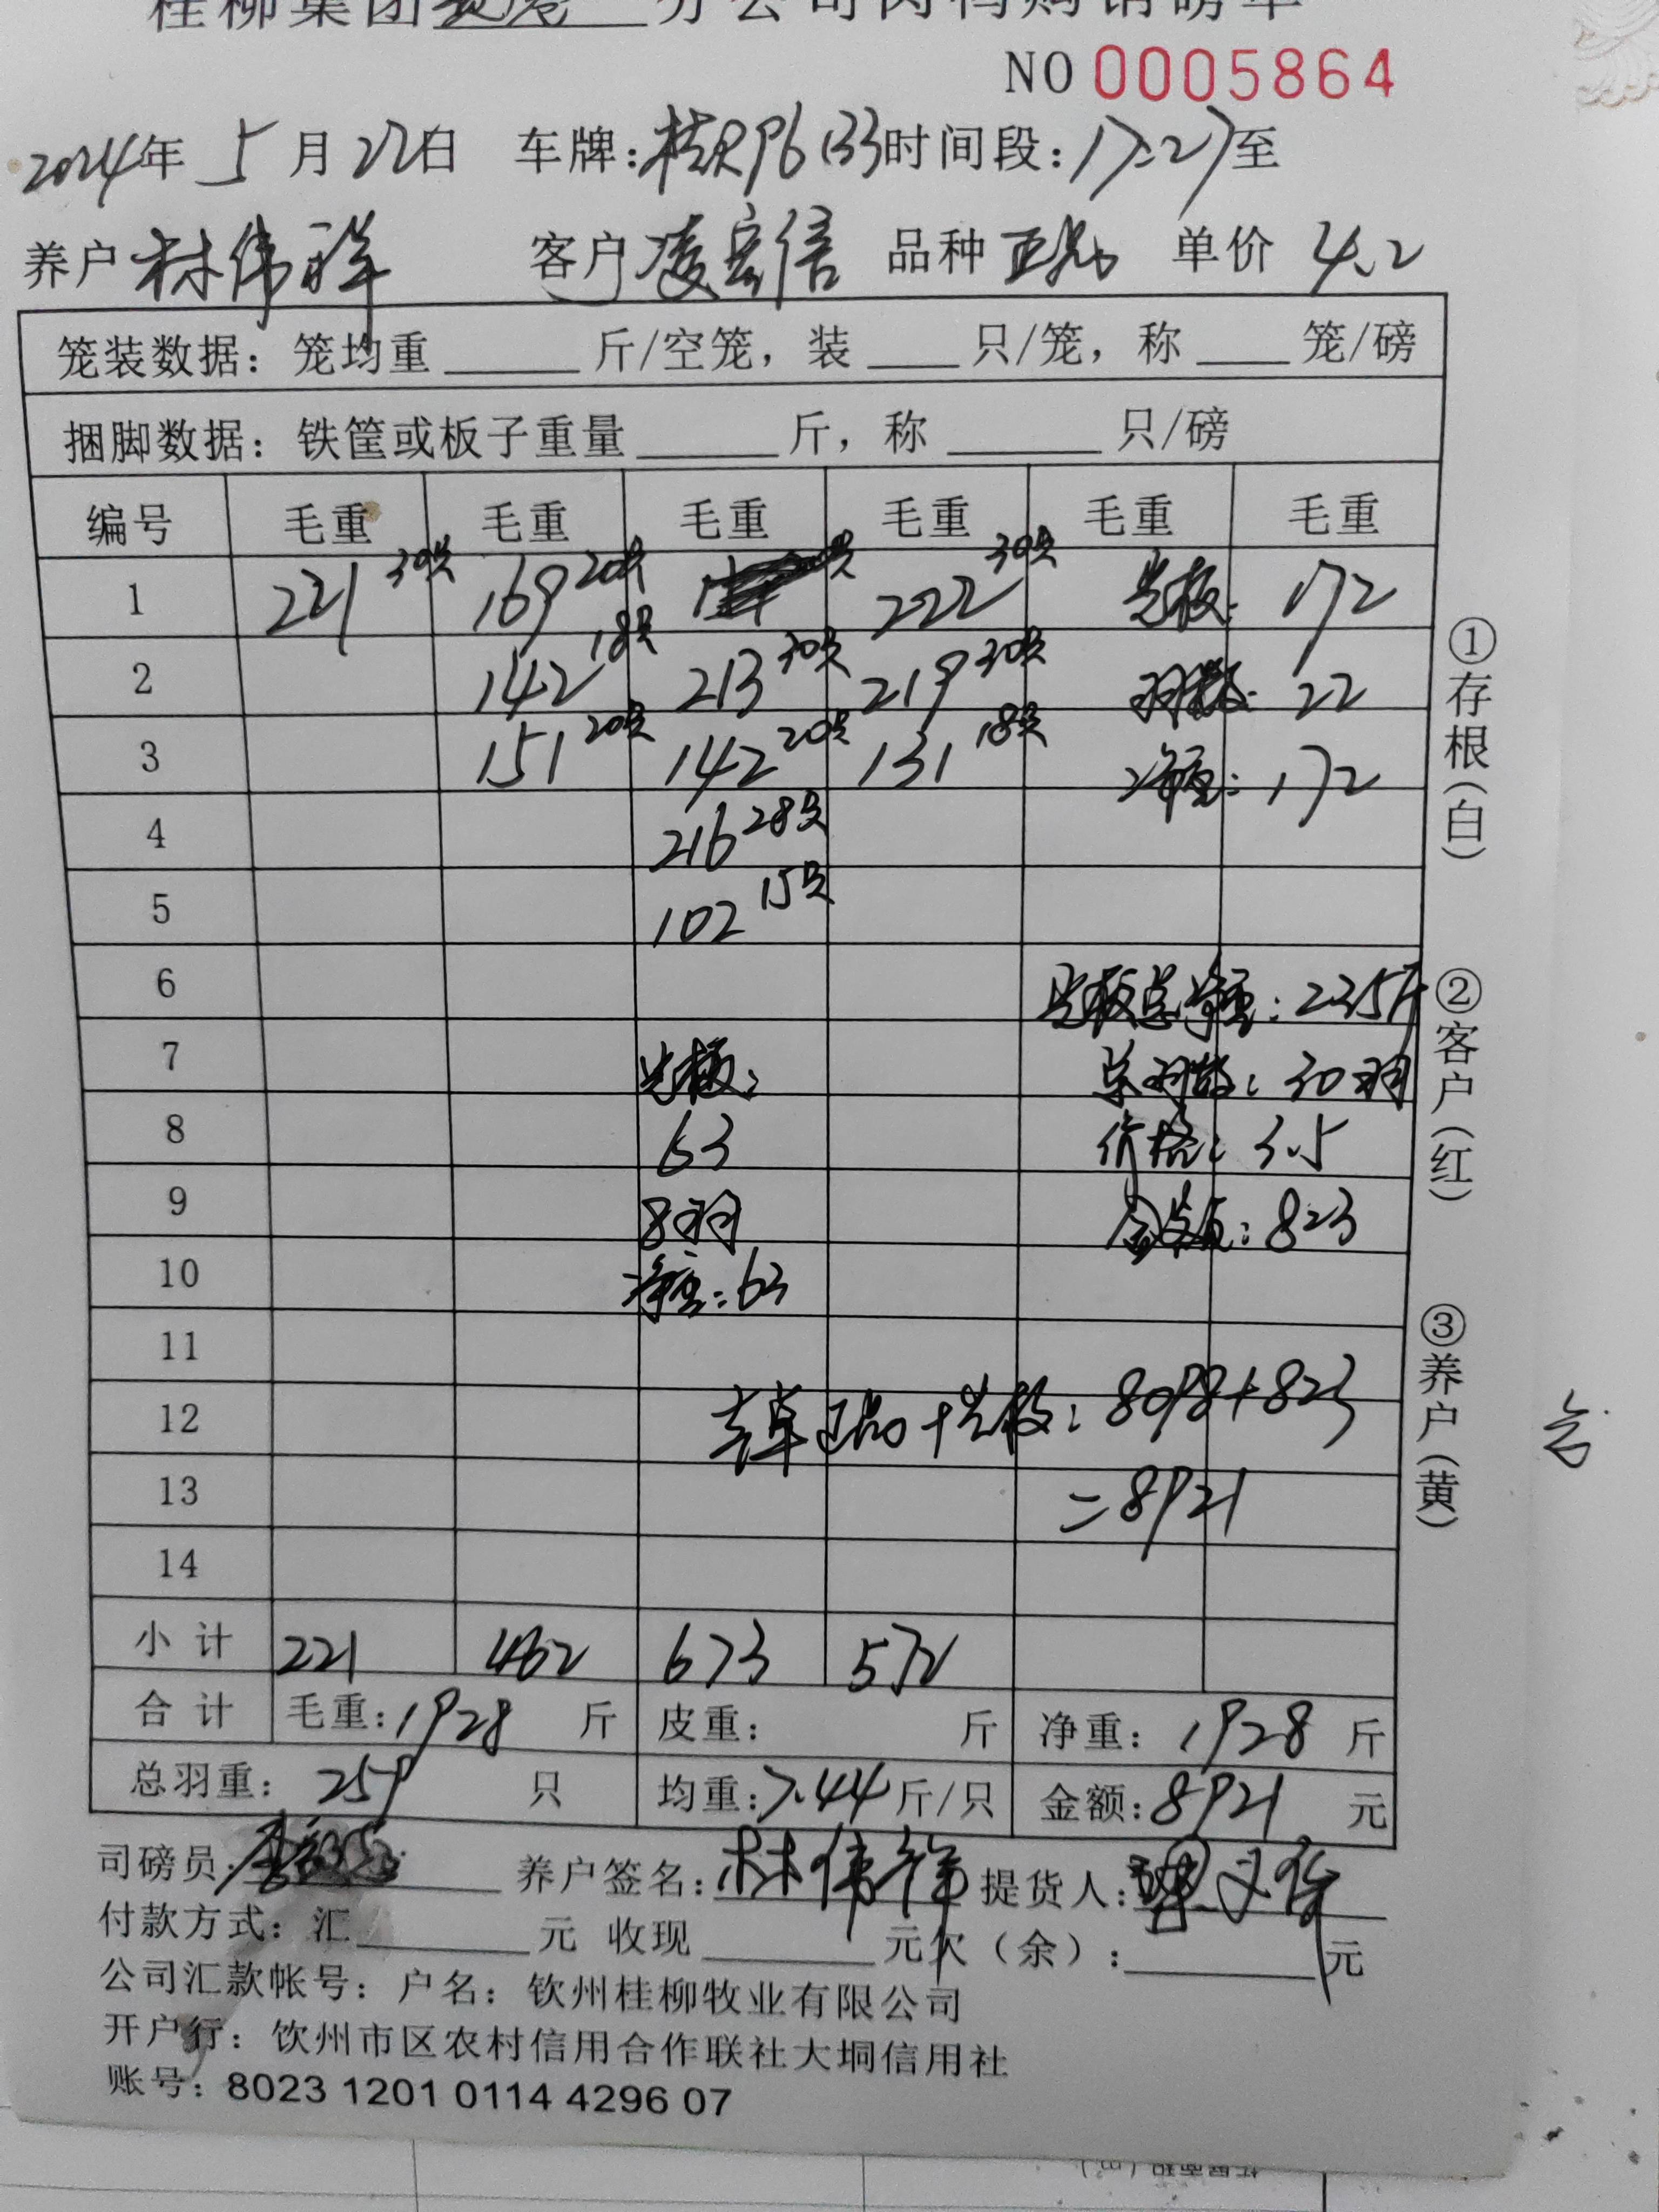 桂柳集团 分公司肉鸭购销磅单
NO 0005864
2024年 5 月 22日 车牌:桂RP6133 时间段:17:27至
养户 林伟祥 客户 凌宏信 品种 正品 单价 4.2
笼装数据: 笼均重 斤/空笼, 装 只/笼, 称 笼/磅
捆脚数据: 铁筐或板子重量 斤, 称 只/磅
编号 毛重 毛重 毛重 毛重 毛重 毛重
1 221 30只 169 20只 222 30只 光板: 172
2 142 18只 213 30只 219 30只 羽数: 22
3 151 20只 142 20只 131 18只 净重: 172
4 216 28只
5 102 15只
6 光板总净重: 235斤
7 光板: 总羽数: 30羽
8 63 价格: 3.5
9 8羽 金额: 823
10 净重: 63
11
12 正品+光板: 8098+823
13 =8921
14
小计 221 462 673 572
合计 毛重:1928 斤 皮重: 斤 净重: 1928 斤
总羽重: 259 只 均重:7.44 斤/只 金额:8921 元
司磅员: 养户签名: 林伟祥 提货人:
付款方式: 汇 元 收现 元欠(余): 元
公司汇款帐号: 户名: 钦州桂柳牧业有限公司
开户行: 饮州市区农村信用合作联社大垌信用社
账号: 8023 1201 0114 4296 07
①存根(白)
②客户(红)
③养户(黄)